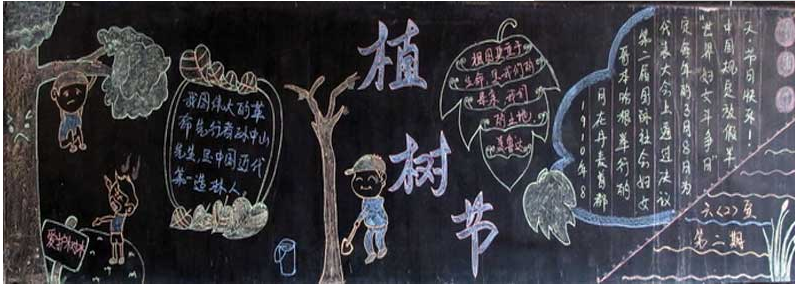 爱护树木
我国伟大的革
命先行者孙中山
先生,是中国近代
第一造林人。
植树节
祖国更重于
生命,是我们的
母亲,我们
的土地。
聂鲁达
1910年8
月在丹麦首都
哥本哈根举行的
第二届国际社会妇女
代表大会上通过决议
定每年的3月8日为
“世界妇女斗争日”
中国规定放假半
天,节日快乐!
六〈2〉
第二期